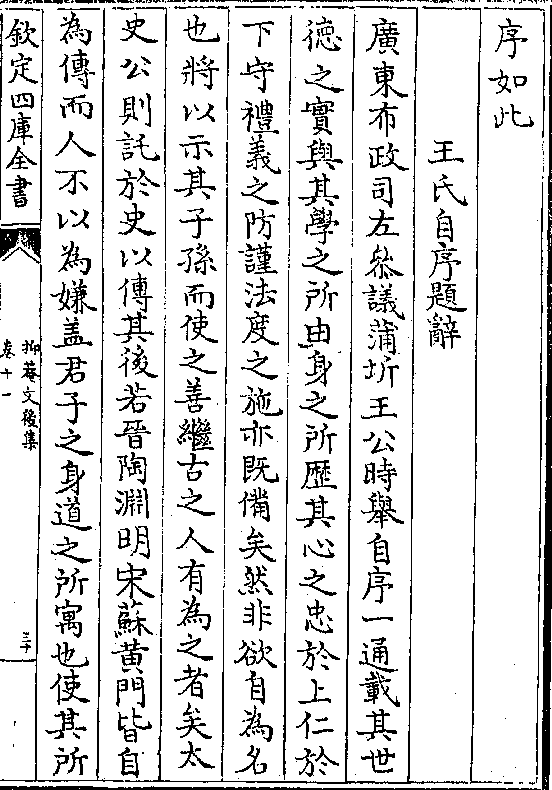 序如此
王氏自序題辭
廣東布政司左叅議蒲圻王公時舉自序一通載其世
徳之實與其學之所由身之所歴其心之忠於上仁於
下守禮義之防謹法度之施亦既備矣然非欲自為名
也將以示其子孫而使之善繼古之人有為之者矣太
史公則託於史以傳其後若晉陶淵明宋蘇黄門皆自
為傳而人不以為嫌盖君子之身道之所寓也使其所
欽定四庫全書
抑菴文後集
卷十一
三十